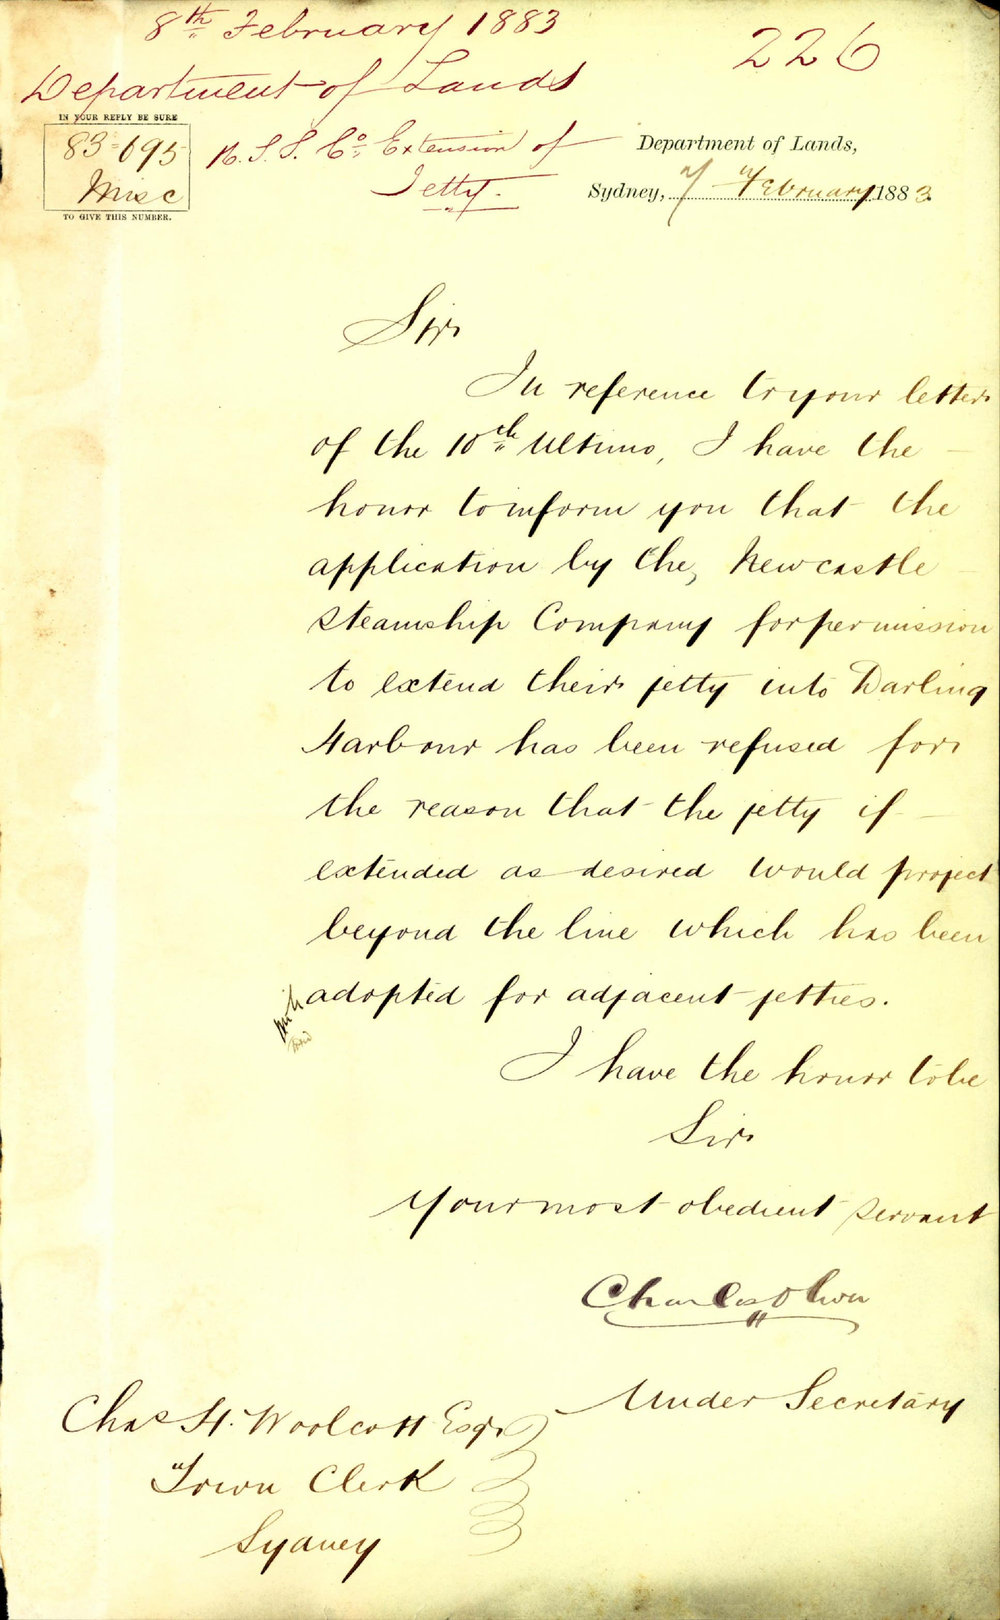 8th February 1883
226
Department of Lands
IN YOUR REPLY BE SURE
83-695
Misc
TO GIVE THIS NUMBER.
N. S. S. Co. Extension of
Jetty.
Department of Lands,
Sydney, 7 February 1883.
Sir
In reference to your letter
of the 10th Ultimo, I have the
honor to inform you that the
application by the, Newcastle
Steamship Company for permission
to extend their jetty into Darling
Harbour has been refused for
the reason that the jetty if
extended as desired would project
beyond the line which has been
adopted for adjacent jetties.
I have the honor to be
Sir
Your most obedient servant
Charles Oliver
Under Secretary
Chas H. Woolcott Esqr
Town Clerk
Sydney